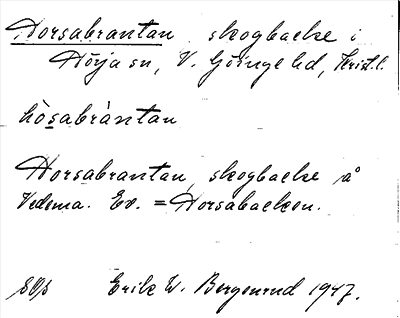 Horsabrantan skogbacke i
Hörja sn, V. Göinge hd, Krist. l.
hòsabràntan
Horsabrantan, skogbacke å
Vedema. Ev. = Horsabacken.
Erik W. Bergenrud 1947.